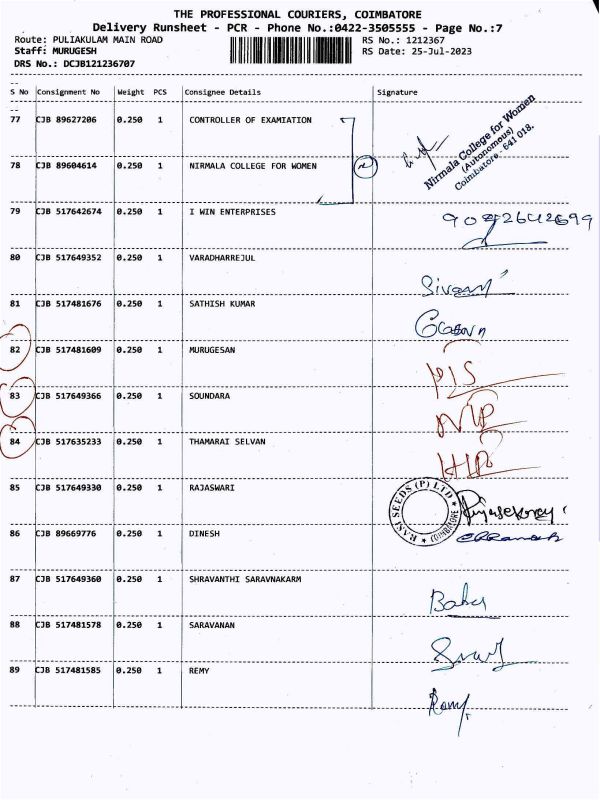 THE PROFESSIONAL COURIERS, COIMBATORE
Delivery Runsheet - PCR - Phone No.:0422-3505555 - Page No.:7
Route: PULIAKULAM MAIN ROAD RS No.: 1212367
Staff: MURUGESH RS Date: 25-Jul-2023
DRS No.: DCJB121236707
S No Consignment No Weight PCS Consignee Details Signature
77 CJB 89627206 0.250 1 CONTROLLER OF EXAMIATION
Nirmala College for Women
(Autonomous)
Coimbatore - 641 018.
78 CJB 89604614 0.250 1 NIRMALA COLLEGE FOR WOMEN 2
79 CJB 517642674 0.250 1 I WIN ENTERPRISES
80 CJB 517649352 0.250 1 VARADHARREJUL
81 CJB 517481676 0.250 1 SATHISH KUMAR
82 CJB 517481609 0.250 1 MURUGESAN
83 CJB 517649366 0.250 1 SOUNDARA
84 CJB 517635233 0.250 1 THAMARAI SELVAN
85 CJB 517649330 0.250 1 RAJASWARI
RASI SEEDS (P) LTD
COIMBATORE
86 CJB 89669776 0.250 1 DINESH
87 CJB 517649360 0.250 1 SHRAVANTHI SARAVNAKARM
Babu
88 CJB 517481578 0.250 1 SARAVANAN
89 CJB 517481585 0.250 1 REMY
Remy